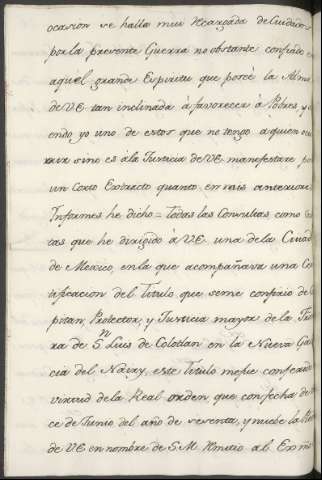 ocasion se halla mui recargada de Cuidados
por la presente Guerra no obstante confiado en
aquel grande Espiritu que poreé la Alma
de VE tan inclinada à favorecer à Pobres y
endo yo uno de estos que no tengo a quien ocu
rrir sino es à la Justicia de VE manifestare por
un Corto Extracto quanto en mis anteriores
Informes he dicho = Todas las Consultas, como Car
tas que he dirigido à VE una de la Ciudad
de Mexico, en la que acompañava una Cer
tificacion del Titulo que seme confirio de Ca
pitan, Protector, y Justicia mayor de la Fron
tera de Sn Luis de Colotlan en la Nueva Gali
cia del Nàyry, este Titulo mefue conferido
virtud de la Real orden que con fecha de
ce de Junio del año de sesenta, y nuebe la
de VE en nombre de S.M. Remitio al Exmo